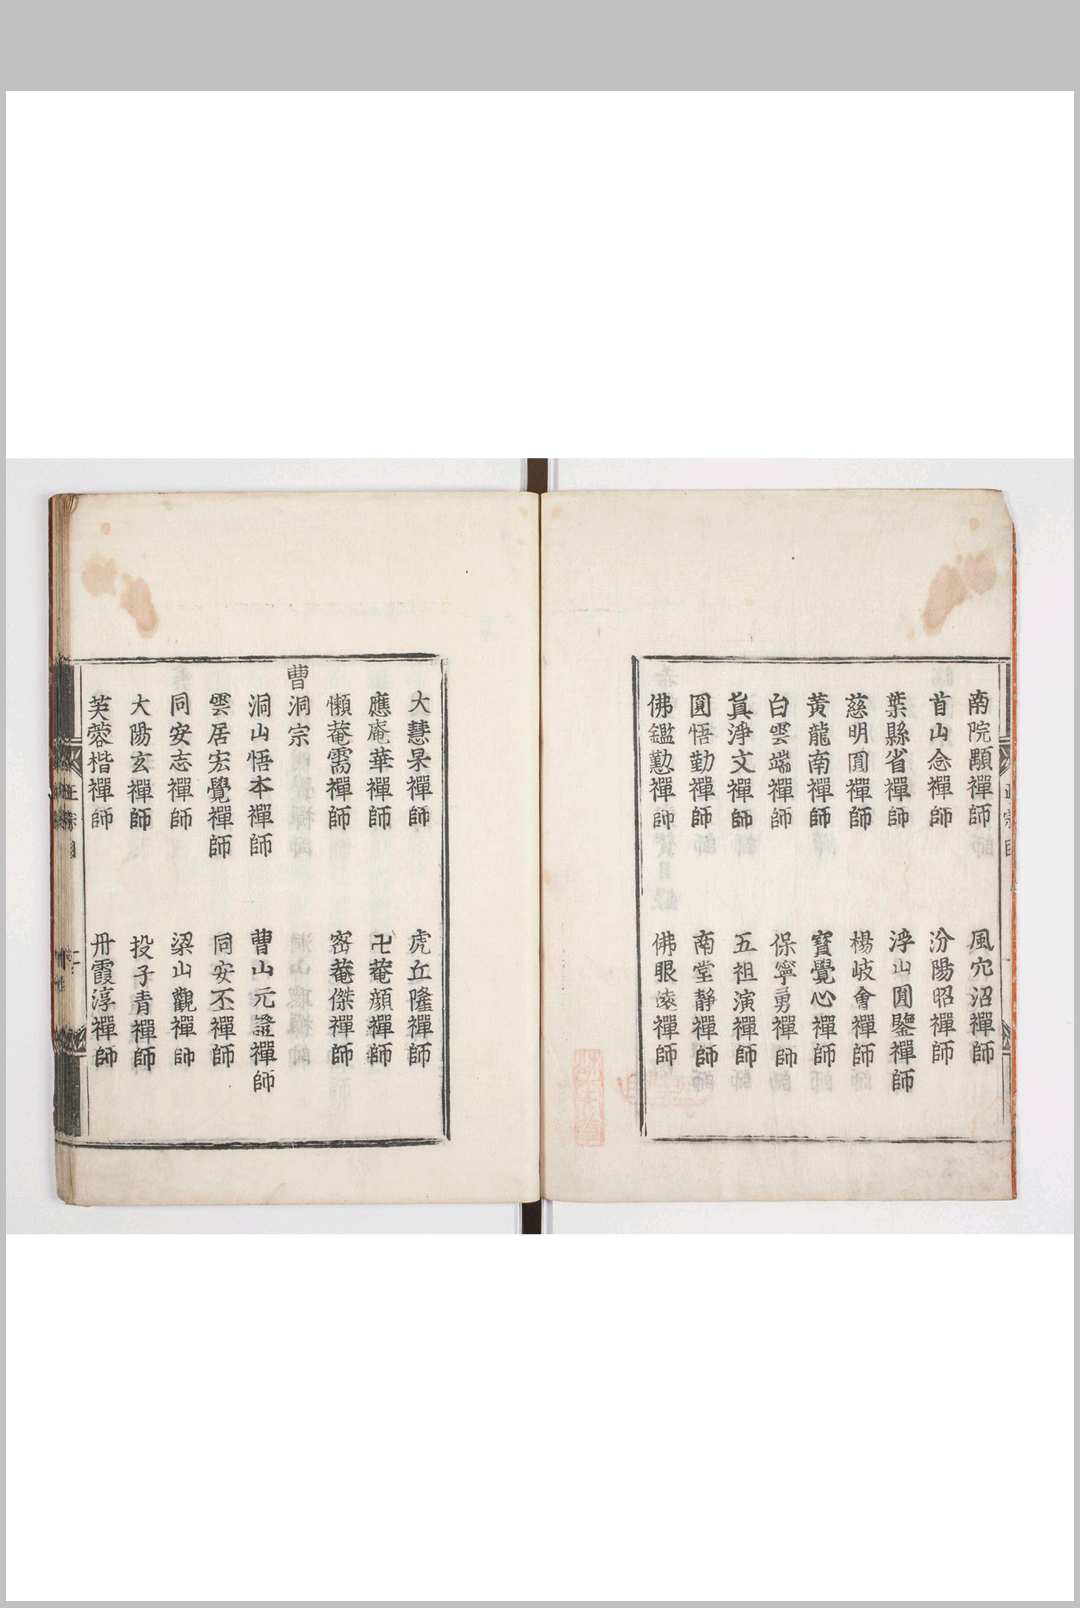 南院顒禪師　風穴沼禪師
首山念禪師　汾陽昭禪師
葉縣省禪師　浮山圓鑒禪師
慈明圓禪師　楊岐會禪師
黃龍南禪師　寶覺心禪師
白雲端禪師　保寧勇禪師
眞淨文禪師　五祖演禪師
圓悟勤禪師　南堂靜禪師
佛鑑懃禪師　佛眼遠禪師
大慧杲禪師　虎丘隆禪師
應庵華禪師　卍菴顔禪師
懶菴需禪師　密菴傑禪師
曹洞宗
洞山悟本禪師　曹山元證禪師
雲居宏覺禪師　同安丕禪師
同安志禪師　梁山觀禪師
大陽玄禪師　投子青禪師
芙蓉楷禪師　丹霞淳禪師